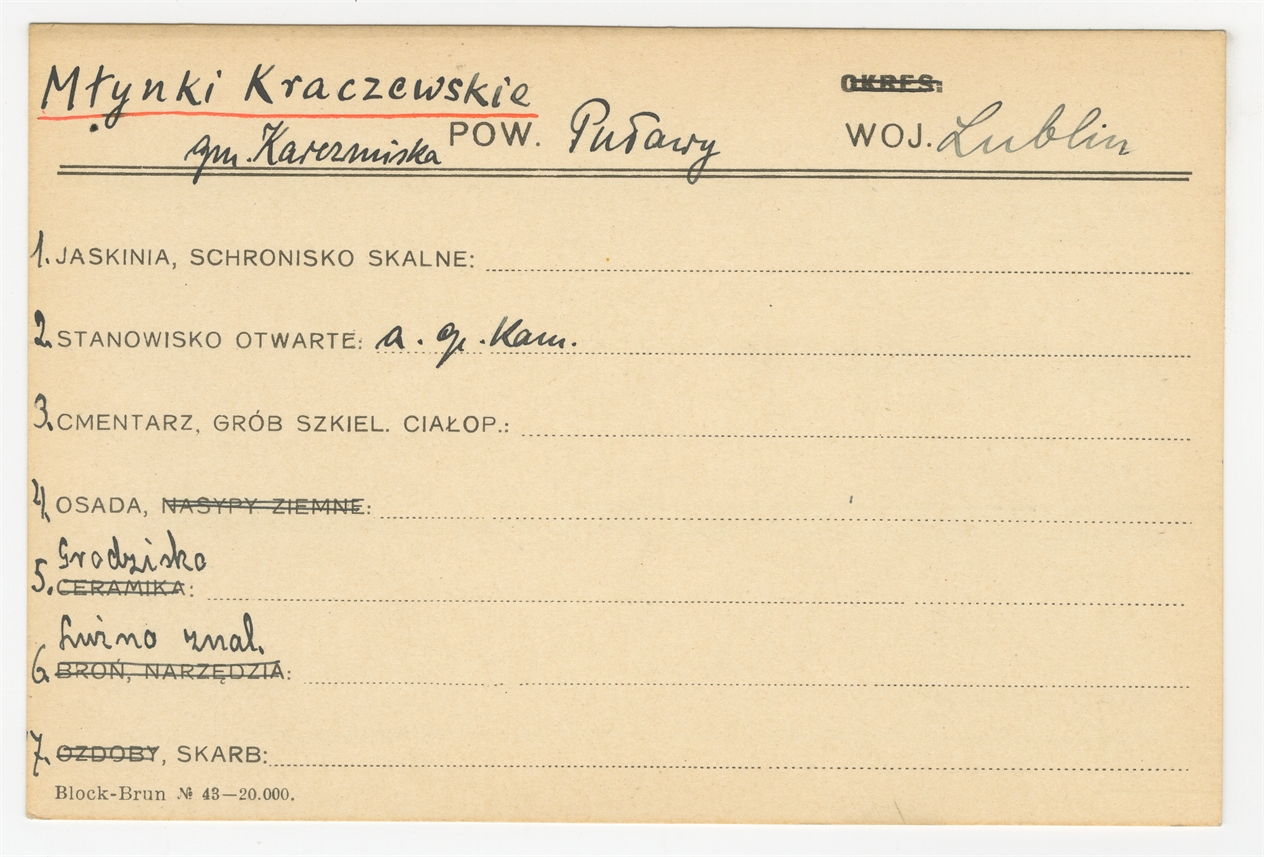 Młynki Kraczewskie
OKRES:
gm. Karczmiska POW. Puławy WOJ. Lublin
1. JASKINIA, SCHRONISKO SKALNE:
2. STANOWISKO OTWARTE: a. gp. Kam.
3. CMENTARZ, GRÓB SZKIEL. CIAŁOP.:
4. OSADA, NASYPY ZIEMNE:
Grodzisko
5. CERAMIKA:
Luźno znal.
6. BROŃ, NARZĘDZIA:
7. OZDOBY, SKARB:
Block-Brun № 43—20.000.